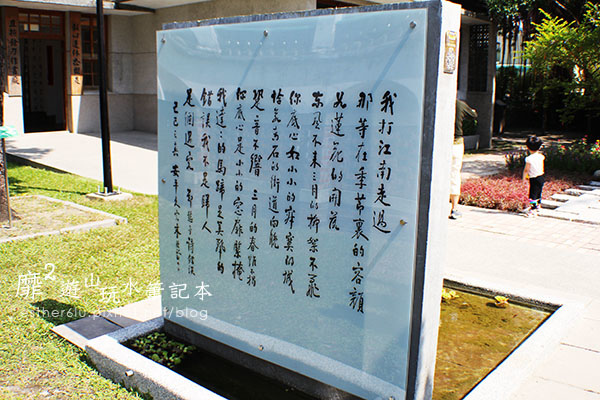 我打江南走過
那等在季節裏的容顏
如蓮花的開落
東風不來三月的柳絮不飛
你底心如小小的寂寞的城
恰若青石的街道向晚
跫音不響 三月的春帷不揭
你底心是小小的窗扉緊掩
我達達的馬蹄是美麗的
錯誤我不是歸人
是個過客 鄭愁予詩錯誤
遊山玩水筆記本